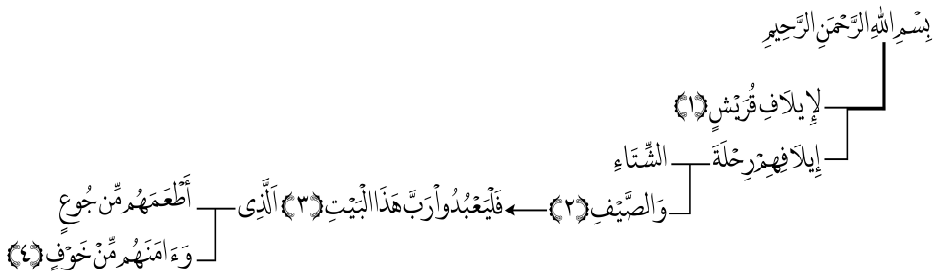 بِسْمِ اللَّهِ الرَّحْمَنِ الرَّحِيمِ
لِإِيلَافِ قُرَيْشٍ ﴿١﴾
إِيلَافِهِمْ رِحْلَةَ الشِّتَاءِ
وَالصَّيْفِ ﴿٢﴾ فَلْيَعْبُدُواْ رَبَّ هَذَا الْبَيْتِ ﴿٣﴾ الَّذِى أَطْعَمَهُم مِّن جُوعٍ
وَءَامَنَهُم مِّنْ خَوْفٍ ﴿٤﴾